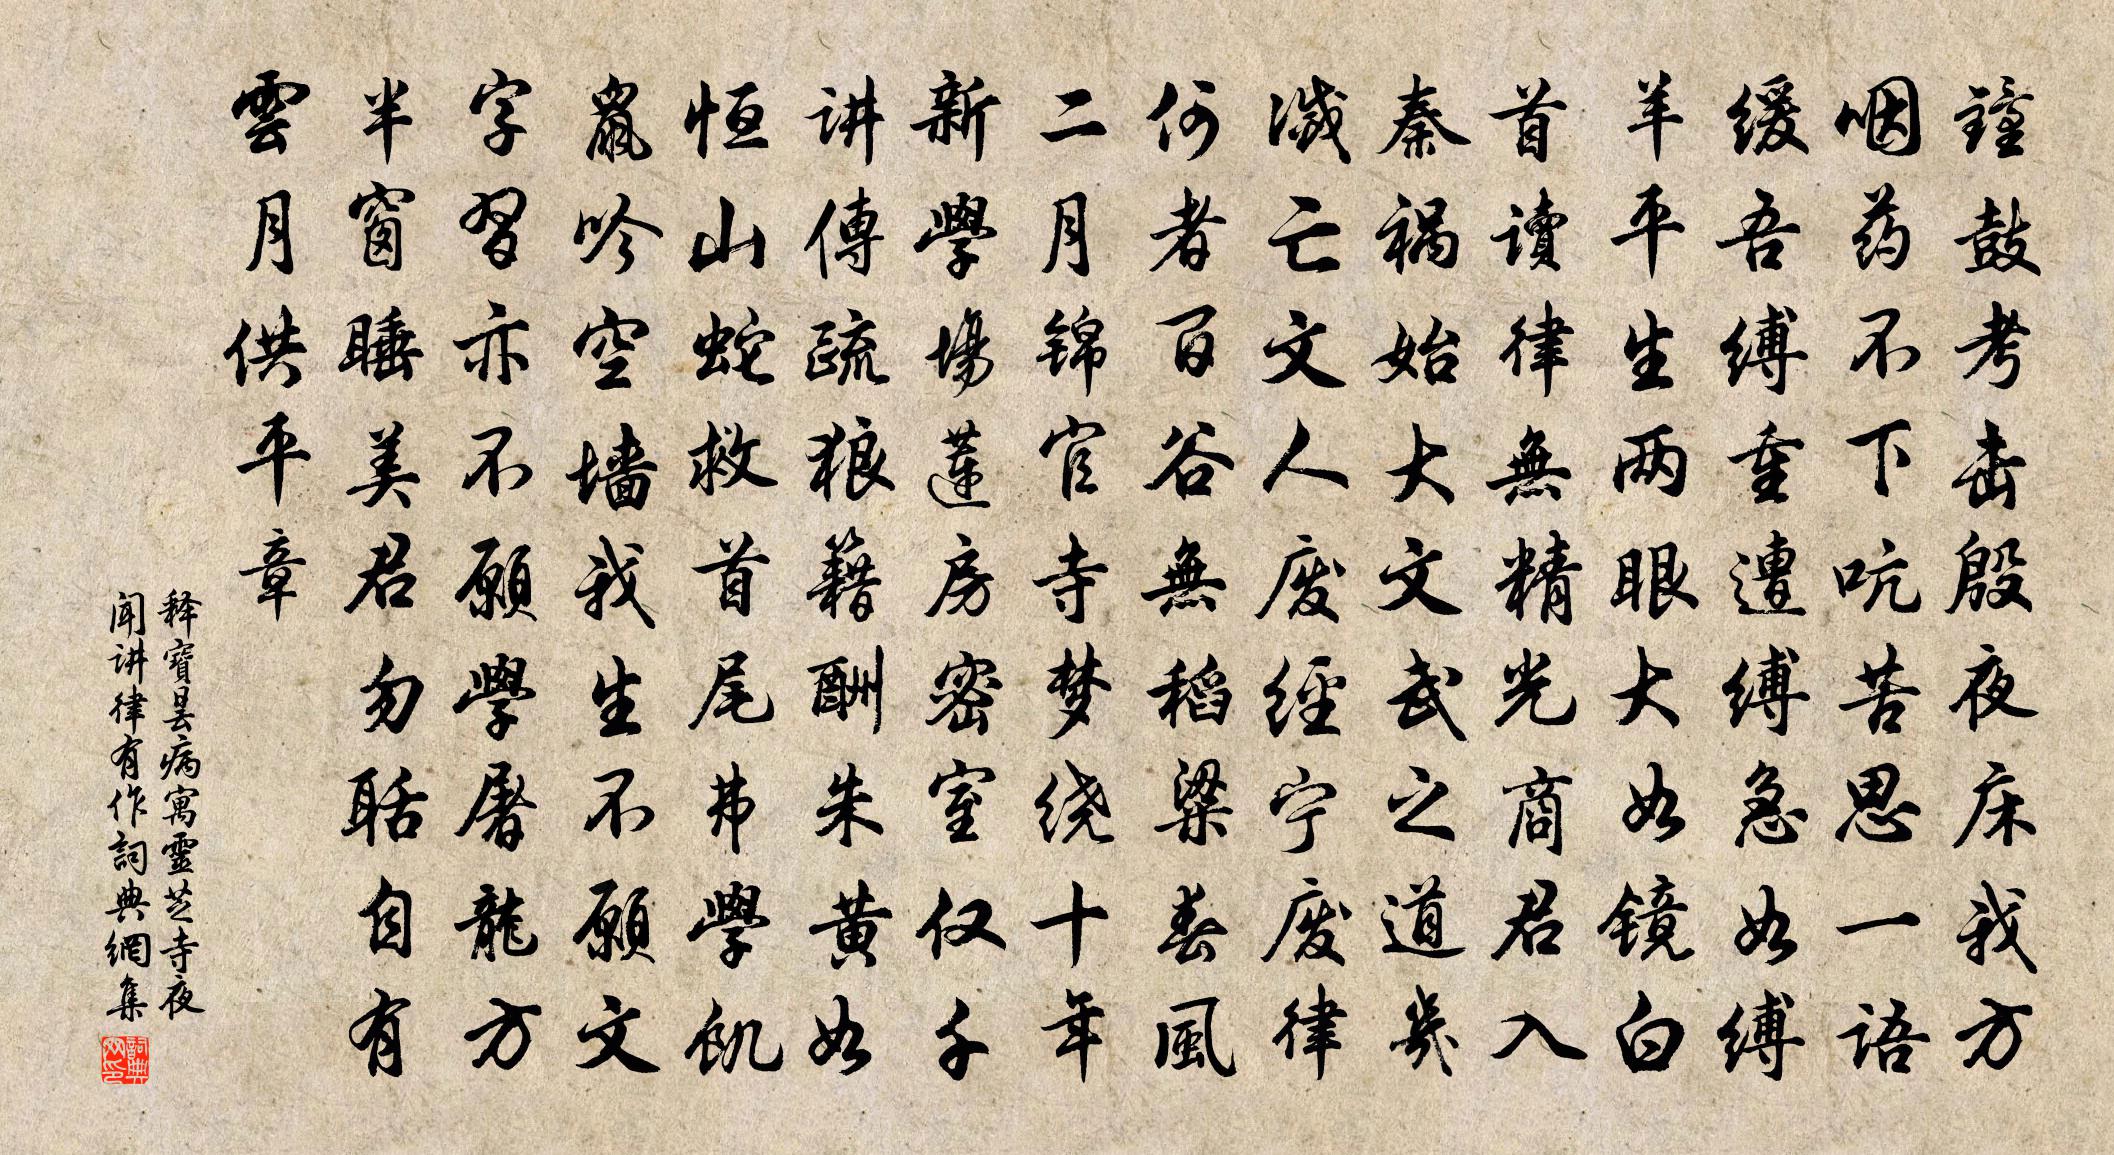 鐘鼓考击殷夜床我方
咽药不下吭苦思一语
缓吾缚重遭缚急如缚
羊平生两眼大如镜白
首读律無精光商君入
秦祸始大文武之道幾
滅亡文人废经宁废律
何者百谷無稻粱春風
二月锦官寺梦绕十年
新學場莲房密室仅千
讲傳疏狼籍酬朱黄如
恒山蛇救首尾弗學飢
鼠吟空墙我生不願文
字習亦不願學屠龍方
半窗睡美君勿聒自有
雲月供平章
释寶昙病寓靈芝寺夜
闻讲律有作詞典網集
詞典网印